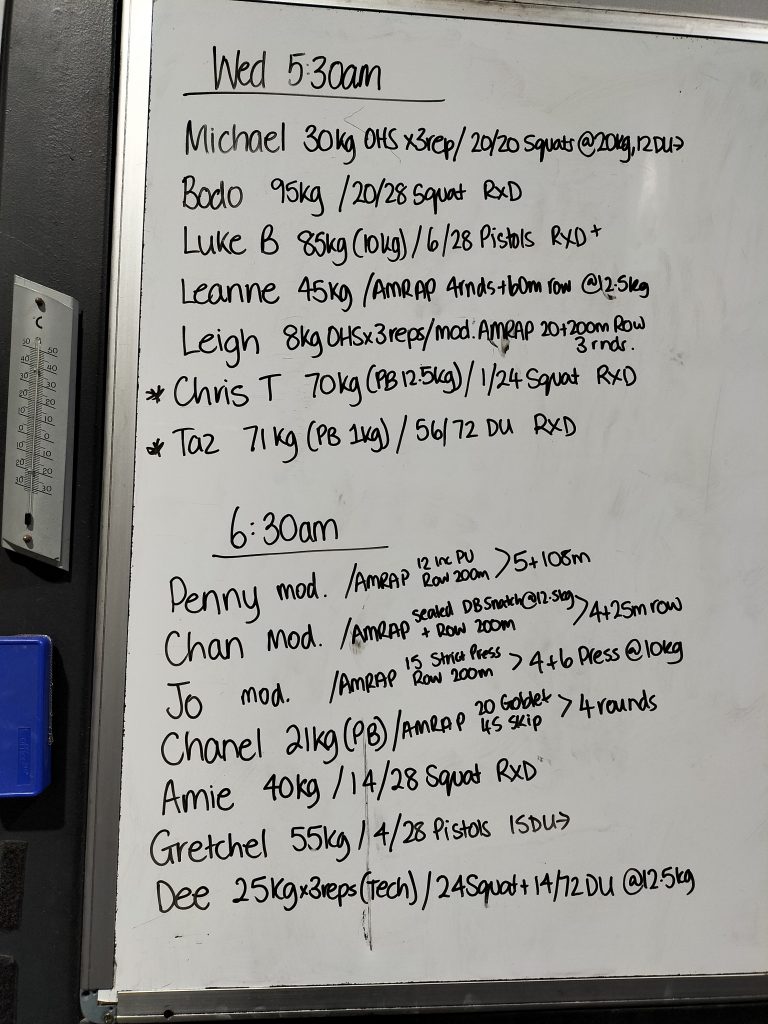 Wed 5:30am
Michael 30kg OHS x3rep/ 20/20 Squats @20kg, 12DU→
Bodo 95kg /20/28 Squat RxD
Luke B 85kg (10kg) / 6/28 Pistols RXD+
Leanne 45kg /AMRAP 4rnds+60m row @12.5kg
Leigh 8kg OHSx3reps/mod. AMRAP 20+200m Row
3 rnds.
* Chris T 70kg (PB 12.5kg) / 1/24 Squat RXD
* Taz 71kg (PB 1kg) / 56/72 DU RXD
6:30am
Penny mod. /AMRAP 12 Inc PU
Row 200m >5+108m
Chan mod. /AMRAP seated DB Snatch@12.5kg
+ Row 200m >4+25m row
Jo mod. /AMRAP 15 Strict Press
Row 200m > 4+6 Press @10kg
Chanel 21kg (PB) /AMRAP 20 Goblet
45 Skip > 4 rounds
Amie 40kg /14/28 Squat RXD
Gretchel 55kg / 4/28 Pistols 15DU→
Dee 25kgx3reps (Tech) / 24 Squat + 14/72 DU @12.5kg
°C
50 50
40 40
30 30
20 20
10 10
0 0
10 10
20 20
30 30